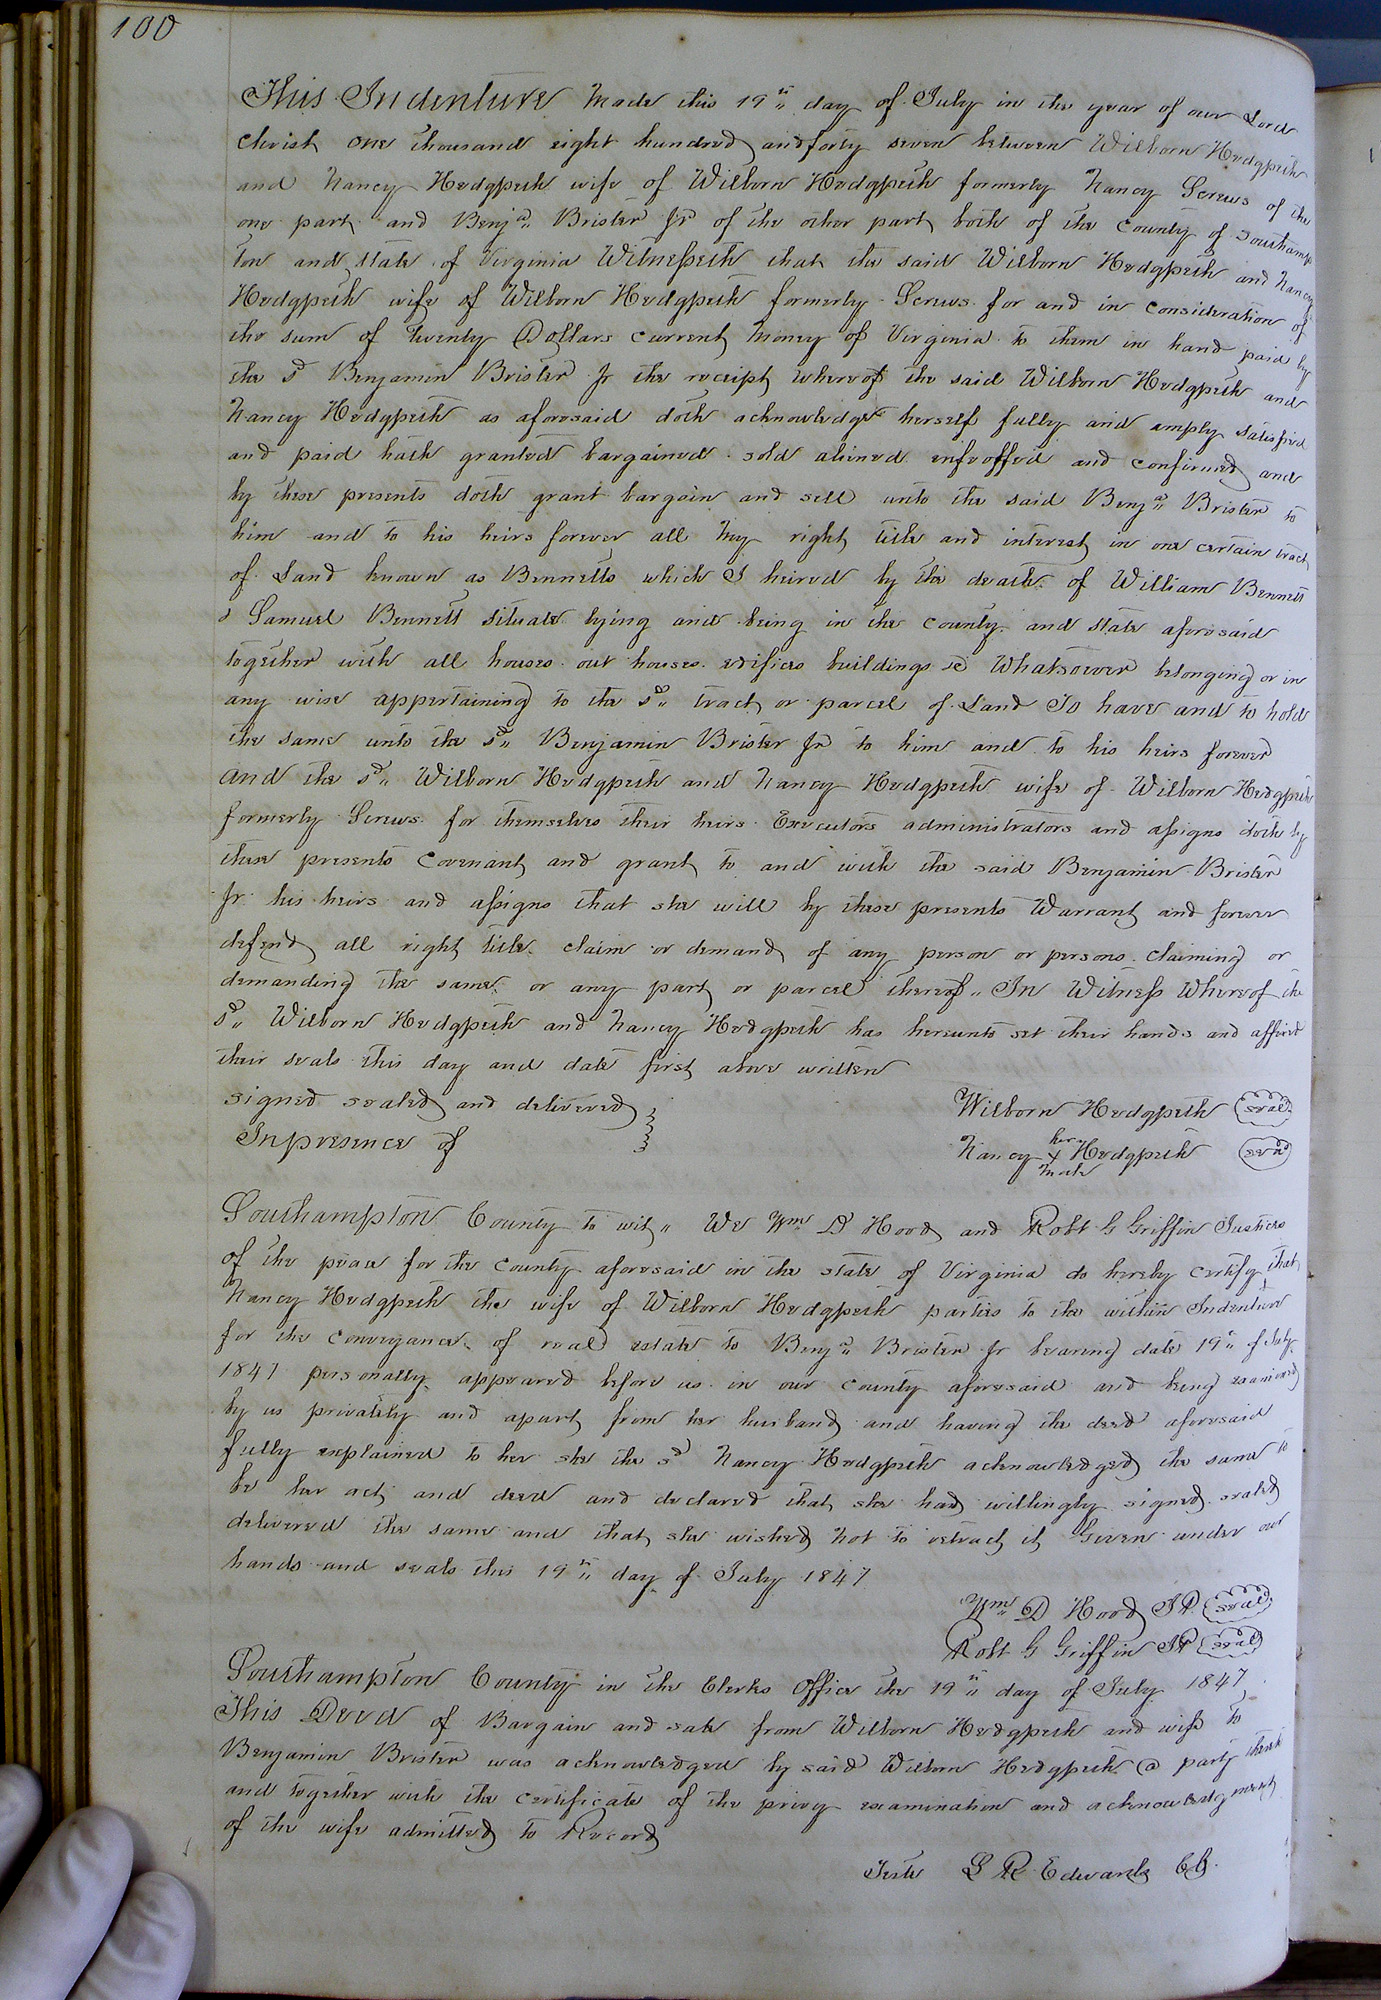 100
This Indenture Made this 19th day of July in the year of our Lord
Christ one thousand eight hundred and forty seven between Wilborn Hedgpeth
and Nancy Hedgpeth wife of Wilborn Hedgpeth formerly Nancy Screws of the
one part and Benja. Brister Jr of the other part both of the County of Southamp
ton and state of Virginia Witnesseth that the said Wilborn Hedgpeth and Nancy
Hedgpeth wife of Wilborn Hedgpeth formerly Screws for and in consideration of
the sum of twenty Dollars current money of Virginia to them in hand paid by
the sd Benjamin Brister Jr the receipt whereof the said Wilborn Hedgpeth and
Nancy Hedgpeth as aforesaid doth acknowledge herself fully and amply satisfied
and paid hath granted bargained sold aliened enfeoffed and confirmed and
by these presents doth grant bargain and sell unto the said Benja. Brister to
him and to his heirs forever all my right title and interest in one certain tract
of Land known as Bennetts which I heired by the death of William Bennett
& Samuel Bennett situate lying and being in the county and state aforesaid
together with all houses out houses edifices buildings &c Whatsoever belonging or in
any wise appertaining to the sd. tract or parcel of Land To have and to hold
the same unto the sd. Benjamin Brister Jr to him and to his heirs forever
and the sd. Wilborn Hedgpeth and Nancy Hedgpeth wife of Wilborn Hedgpeth
formerly Screws for themselves their heirs Executors administrators and assigns doth by
these presents Covenant and grant to and with the said Benjamin Brister
Jr his heirs and assigns that she will by these presents Warrant and forever
defend all right title claim or demand of any person or persons claiming or
demanding the same or any part or parcel thereof. In Witness Whereof the
sd. Wilborn Hedgpeth and Nancy Hedgpeth has hereunto set their hands and affixed
their seals this day and date first above written
signed sealed and delivered
In presence of
Wilborn Hedgpeth seal
Nancy her X mark Hedgpeth seal
Southampton County to wit, We Wm D Hood and Robt G Griffin Justices
of the peace for the County aforesaid in the state of Virginia do hereby certify that
Nancy Hedgpeth the wife of Wilborn Hedgpeth parties to the within Indenture
for the conveyance of real estate to Benja. Brister Jr bearing date 19th of July
1847 personally appeared before us in our county aforesaid and being examined
by us privately and apart from her husband and having the deed aforesaid
fully explained to her she the sd Nancy Hedgpeth acknowledged the same to
be her act and deed and declared that she had willingly signed sealed
delivered the same and that she wished not to retract it Given under our
hands and seals this 19th day of July 1847
Wm D Hood JP seal
Robt G Griffin JP seal
Southampton County in the Clerks Office the 19th day of July 1847
This Deed of Bargain and sale from Wilborn Hedgpeth and wife to
Benjamin Brister was acknowledged by said Wilborn Hedgpeth a party thereto
and together with the certificate of the privy examination and acknowledgment
of the wife admitted to Record
Teste L R Edwards CC.